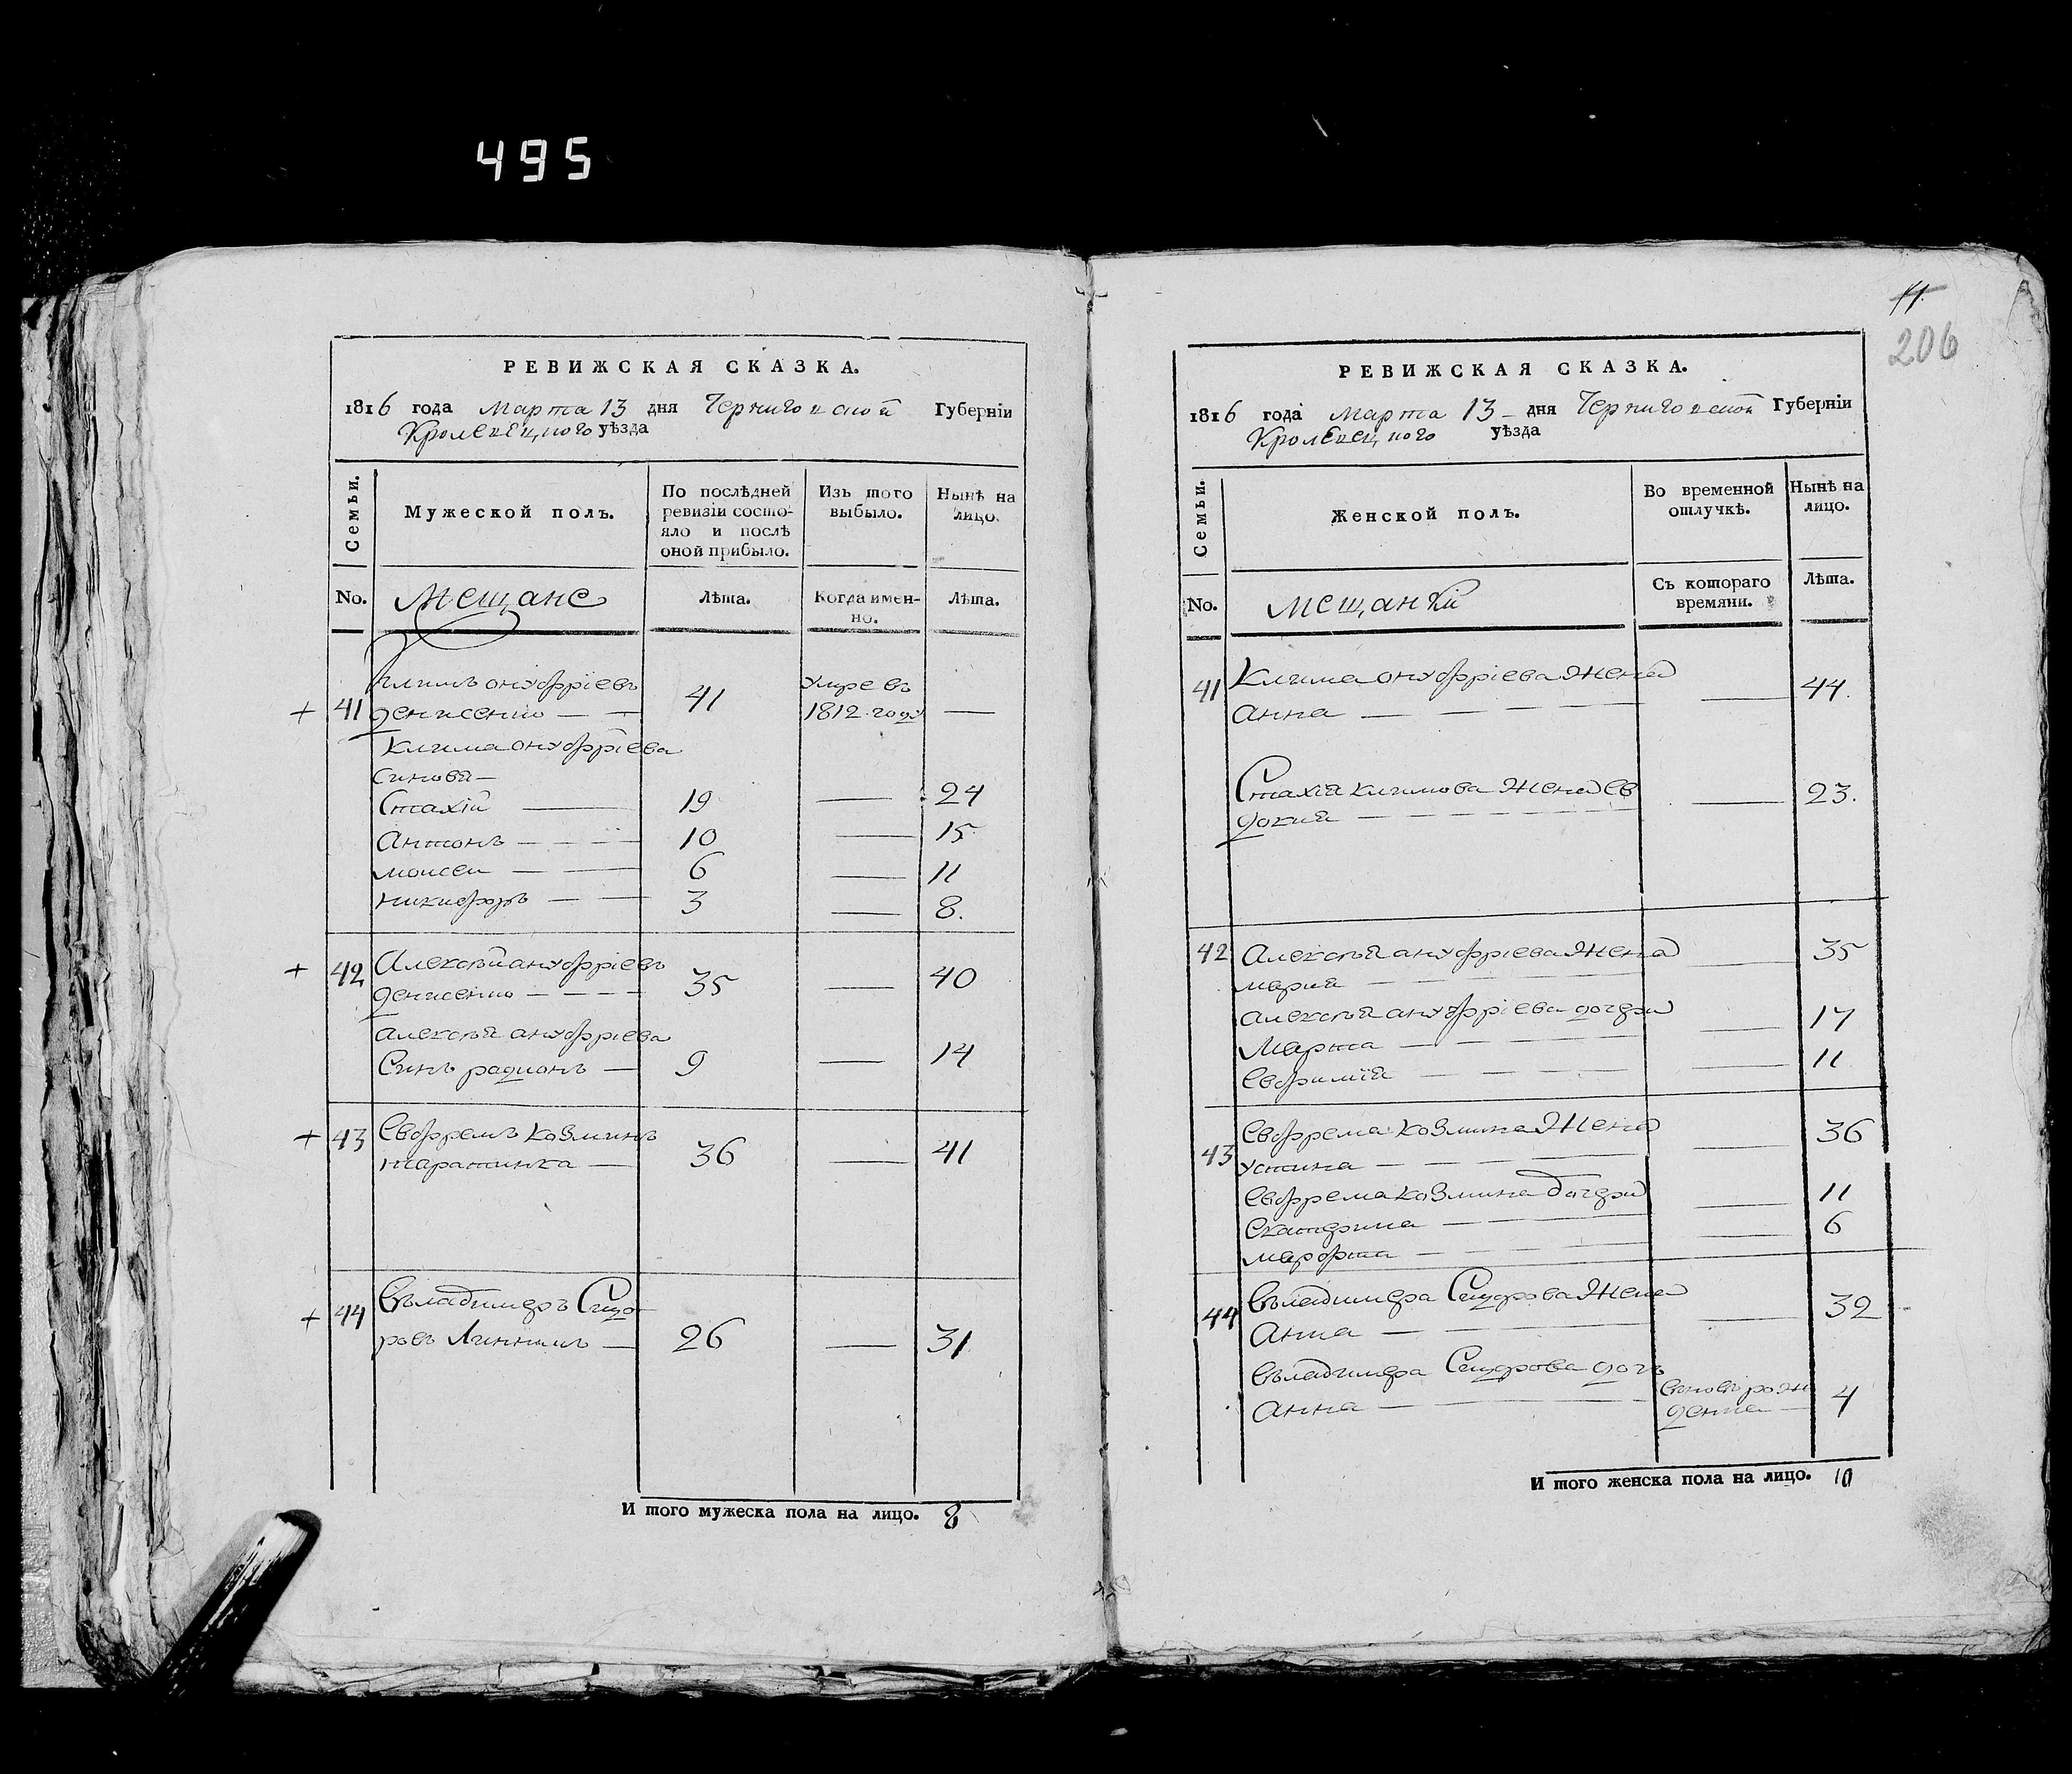 495
РЕВИЖСКАЯ СКАЗКА.
1816 года Марта 13 дня Черниговской Губерніи
Кролевецкого уѣзда
Семьи.
Мужеской полъ.
По послѣдней ревизіи состо-
яло и послѣ оной прибыло.
Изъ того выбыло.
Нынѣ на лицо.
No. Мещане Лѣта. Когда имен-
но. Лѣта.
41 Климъ онуфріевъ
денисенко — — 41 умре въ 1812 году —
Клима онуфріева
синовя —
Стахій — 19 — 24
Антонъ — 10 — 15
моисеи — 6 — 11
никифоръ — 3 — 8.
+ 42 Алексѣй ануфріевъ
денисенко — 35 — 40
алексѣя ануфріева
Синъ радионъ — 9 — 14
+ 43 Евфремъ козминъ
таратинка — 36 — 41
+ 44 Въладимеръ Сидо
ровъ — 26 — 31
И того мужеска пола на лицо. 8
11.
206
РЕВИЖСКАЯ СКАЗКА.
1816 года Марта 13 — дня Черниговской Губерніи
Кролевецкого уѣзда
Семьи.
Женской полъ.
Во временной отлучкѣ.
Нынѣ на лицо.
No. мещанки Съ котораго времяни. Лѣта.
41 Клима онуфріева жена
анна — — — 44.
Стахія климова жена ев
докия — — 23.
42 Алексѣя ануфріева жена — 35
мария —
алексѣя ануфріева дочери — 17
Марта —
Евфимія — — 11
43 Евфрема козмина Жена — 36
устина —
Евфрема козмина дочери — 11
Екатерина — — 6
марфта —
44 Въладимера Сидорова Жена
Анна — — 32
Въладимера Сидорова дочъ
Анна — вновъ рож
денна — 4
И того женска пола на лицо. 10